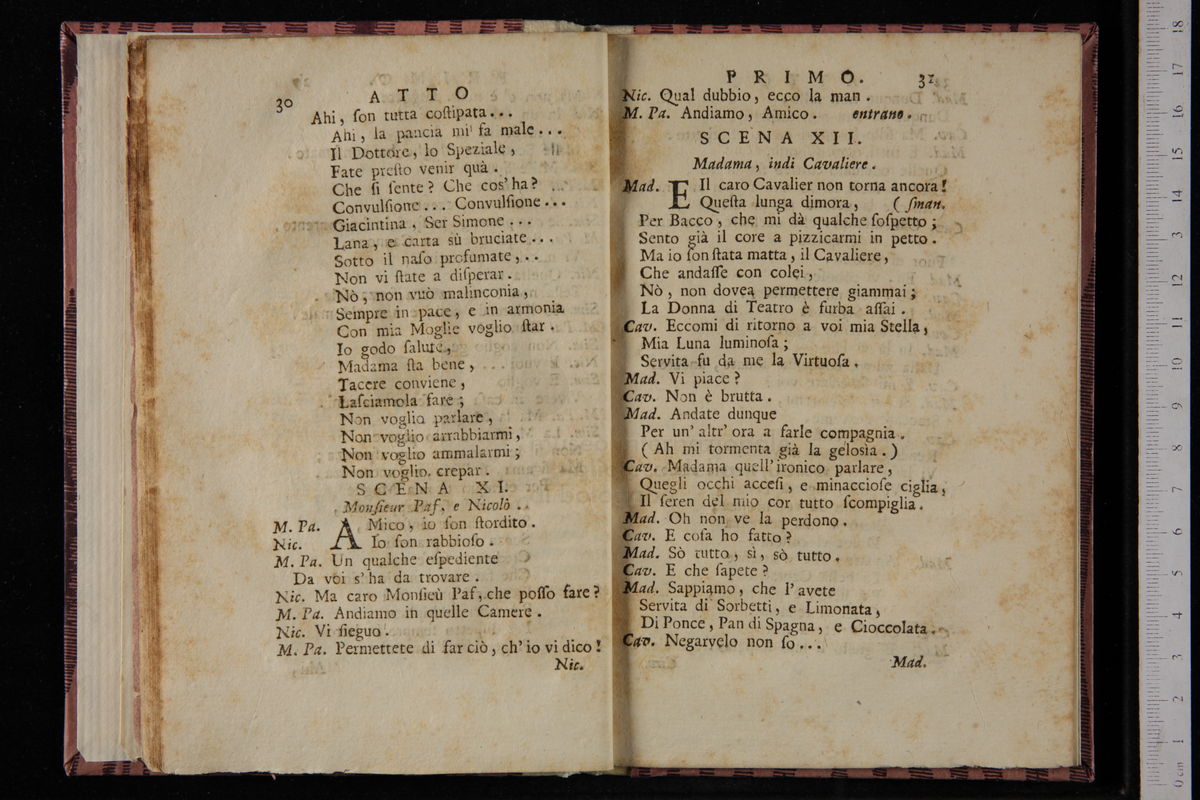 30
A T T O
Ahi, ſon tutta coſtipata...
Ahi, la pancia mi fa male...
Il Dottore, lo Speziale,
Fate preſto venir quà.
Che ſi ſente? Che cos' ha?
Convulſione... Convulſione...
Giacintina, Ser Simone...
Lana, e carta sù bruciate...
Sotto il naſo profumate,..
Non vi ſtate a diſperar.
Nò, non vuò malinconia,
Sempre in pace, e in armonia
Con mia Moglie voglio ſtar.
Io godo ſalute,
Madama ſta bene,
Tacere conviene,
Laſciamola fare;
Non voglio parlare,
Non voglio arrabbiarmi,
Non voglio ammalarmi;
Non voglio crepar.
S C E N A XI.
Monſieur Paf, e Nicolò.
M. Pa. AMico, io ſon ſtordito.
Nic. Io ſon rabbioſo.
M. Pa. Un qualche eſpediente
Da voi s' ha da trovare.
Nic. Ma caro Monſieù Paf, che poſſo fare?
M. Pa. Andiamo in quelle Camere.
Nic. Vi ſieguo.
M. Pa. Permettete di far ciò, ch' io vi dico!
Nic.
P R I M O.
31
Nic. Qual dubbio, ecco la man.
M. Pa. Andiamo, Amico. entrano.
S C E N A XII.
Madama, indi Cavaliere.
Mad. EIl caro Cavalier non torna ancora!
Queſta lunga dimora, (ſman.
Per Bacco, che mi dà qualche ſoſpetto;
Sento già il core a pizzicarmi in petto.
Ma io ſon ſtata matta, il Cavaliere,
Che andaſſe con colei,
Nò, non dovea permettere giammai;
La Donna di Teatro è furba aſſai.
Cav. Eccomi di ritorno a voi mia Stella,
Mia Luna luminoſa;
Servita fu da me la Virtuoſa.
Mad. Vi piace?
Cav. Non è brutta.
Mad. Andate dunque
Per un' altr' ora a farle compagnia.
(Ah mi tormenta già la geloſìa.)
Cav. Madama quell' ironico parlare,
Quegli occhi acceſi, e minaccioſe ciglia,
Il ſeren del mio cor tutto ſcompiglia.
Mad. Oh non ve la perdono.
Cav. E coſa ho fatto?
Mad. Sò tutto, sì, sò tutto.
Cav. E che ſapete?
Mad. Sappiamo, che l' avete
Servita di Sorbetti, e Limonata,
Di Ponce, Pan di Spagna, e Cioccolata.
Cav. Negarvelo non ſo...
Mad.